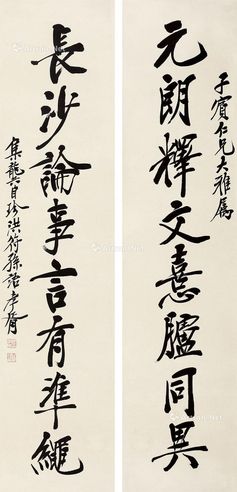 子賓仁兄大雅屬
元朗釋文憙臚同異
長沙論事言有準繩
集龔自珍洪符孫